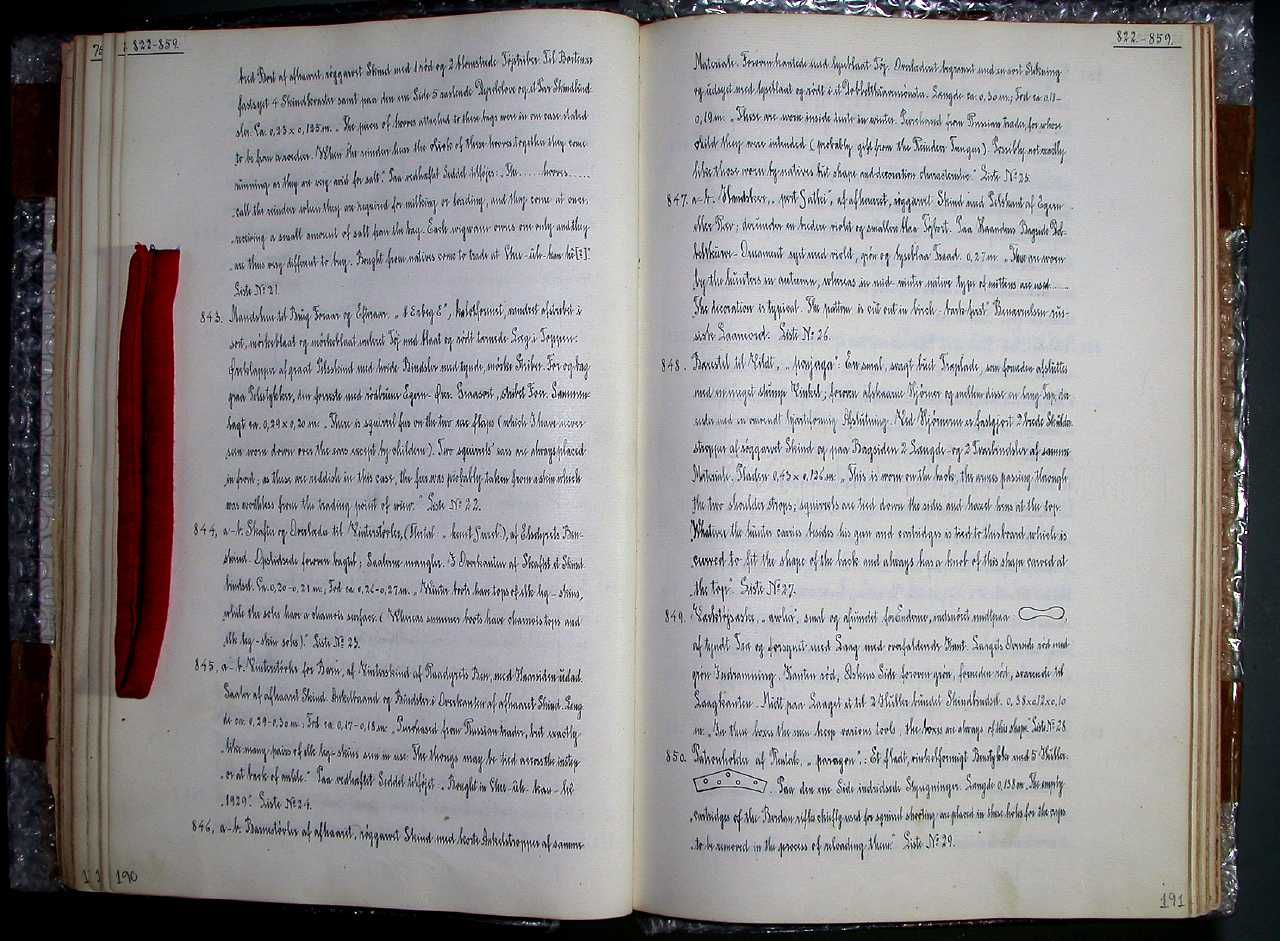 822-859.
bred Bort af afhaaret, røggarvet Skind med 1 rød og 2 blomstrede Tøjstriber. Til Borten er
fastsyet 4 Skindkvaster samt paa den ene Side 5 raslende Dyreklove og et Par Skindbånd
Ca. 0,23 x 0,125 m. "The pieces of hooves attached to these bags were in one case stated
to be from a roedeer. When the reindeer hear the clink of these hooves together they come
running as they are very avid for salt." Paa vedhæftet Seddel tilføjes: "The ..... hooves .....
call the reindeer when they are required for milking or loading, and they come at once,
receiving a small amount of salt from the bag. Each wigwam owns one only and they
are thus very difficult to buy. Bought from natives come to trade at
Liste No. 21.
843. Mandshue til Brug Foraar og Efteraar.
sort, mørkeblaat og mørkeblaat Tøj med blaat og rødt
Øreklapper af graat Pelsskind med hvide Bindsler med tynde, mørke Striber. For og bag
paa Pelsstykker, den forreste med rødbrune Egern-Ører. Graasort, stribet Foer. Sammen-
lagt ca. 0,29 x 0,20 m. "There is squirrel fur on the two ear flaps (which I have never
seen worn down over the ears except by children). Two squirrels' ears are always placed
in front; as these are reddish in this case, the fur was probably taken from a skin which
was worthless from the trading point of view." Liste No. 22.
844, a-b. Skafter og Overlæder til Vinterstøvler, af Elsdyrets Ben-
skind. Opslidsede foroven bagtil; Saalerne mangler. I Overkanten af Skaftet et Skind-
bindsel. Ca. 0,20-0,21 m; Fod ca. 0,26-0,27 m. "Winter boots have tops of elk leg-skins,
while the soles have a chamois surface. (Whereas summer boots have chamois tops and
elk leg-skin soles)." Liste No. 23.
845, a-b. Vinterstøvler for Barn, af Vinterskind af Raadyrets Ben, med Haarsiden udad.
Saaler af afhaaret Skind. Ankelbaand og Bindsler i Overkanten af afhaaret Skind. Læng-
de ca. 0,29-0,30 m; Fod ca. 0,17-0,18 m. "Purchased from Russian trader, but exactly
like many pairs of elk leg-skins seen in use. The thongs may be tied across the instep
or at back of ankle." Paa vedhæftet Seddel tilføjet: "Bought in
1929". Liste No. 24.
846, a-b. Barnestøvler af afhaaret, røggarvet Skind med korte Ankelstropper af samme
190
822-859.
Materiale. Foroven kantede med lyseblaat Tøj. Overlæderet begrænset med en sort Stikning
og udsyet med lyseblaat og rødt i et Dobbeltkurvemønster. Længde ca. 0,30 m; Fod ca. 0,18-
0,19 m. "These are worn inside tents in winter. Purchased from Russian trader, for whose
child they were intended (probably gift from the Reindeer Tungus). Possibly not exactly
like those worn by natives but shape and decoration characteristic." Liste No. 25.
847. a-b. Handsker, af afhaaret, røggarvet Skind med Pelskant af Egern
eller Ræv; derunder en bræden violet og smallere blaa Tøjbort. Paa Haandens Bagside Dob-
beltkurve-Ornament syet med violet, grøn og lyseblaa Traad. 0,27 m. "These are worn
by the hunters in autumn, whereas in mid-winter native types of mittens are used .....
The decoration is typical. The pattern is cut out in birch-bark first." Benævnelsen rus-
sisk Laaneord. Liste No. 26.
848. Bærestel til Vildt, En smal, svagt buet Træplade, som forneden afsluttes
med en meget stump Vinkel; foroven afskaarne Hjørner og mellem disse en lang Tap, for-
neden med en omvendt hjerteformig Afslutning. Ved Hjørnerne er fastgjort 2 brede Skulder-
stropper af røggarvet Skind og paa Bagsiden 2 Længde- og 2 Tværbindsler af samme
Materiale. Pladen 0,43 x 0,136 m. "This is worn on the back, the arms passing through
the two shoulder straps; squirrels are tied down the sides and larger ones at the top.
Whatever the hunter carries besides his gun and cartridges is tied to this board which is
curved to fit the shape of the back and always has a knob of this shape carved at
the top." Liste No. 27.
849. Værktøjsæske, smal og afrundet for Enderne, indsnøret midtpaa,
af tyndt Træ og forsynet med Laag med overfaldende Kant. Laagets Overside rød med
grøn Indramning. Kanten rød, Æskens Side foroven grøn, forneden rød, svarende til
Laagkanten. Midt paa Laaget et til 2 Huller bundet Skindbindsel. 0,38 x 0,12 x 0,10
m. "In these boxes the men keep various tools, the boxes are always of this shape." Liste No. 28.
850. Patronholder af Rentak. Et fladt, vinkelformigt Benstykke med 5 Huller.
Paa den ene Side indridsede Slyngninger. Længde 0,138 m. "The empty
cartridges of the Berdan rifle chiefly used for squirrel shooting are placed in these holes for the caps
to be removed in the process of reloading them." Liste No. 29.
191